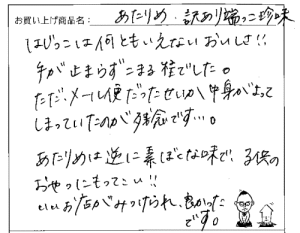 お買い上げ商品名: あたりめ・訳あり端っこ珍味
はじっこは何ともいえないおいしさ!!
手が止まらずこまる程でした。
ただ、メール便だったせいか中身がよって
しまっていたのが残念です…。
あたりめは逆に素ぼくな味で、子供の
おやつにもってこい!!
いいお店がみつけられ、良かった
です。